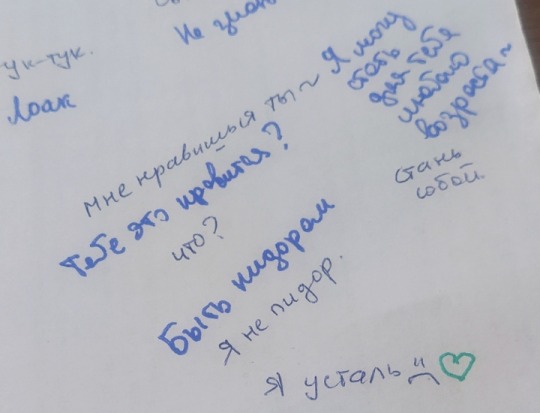 Не знаю
ук-тук.
Лоак
Мне нравишься ты ~
Я могу
стать
для тебя
любого
возраста~
Тебе это нравится?
стань
собой.
что?
Быть пидорам
Я не пидор.
Я усталь